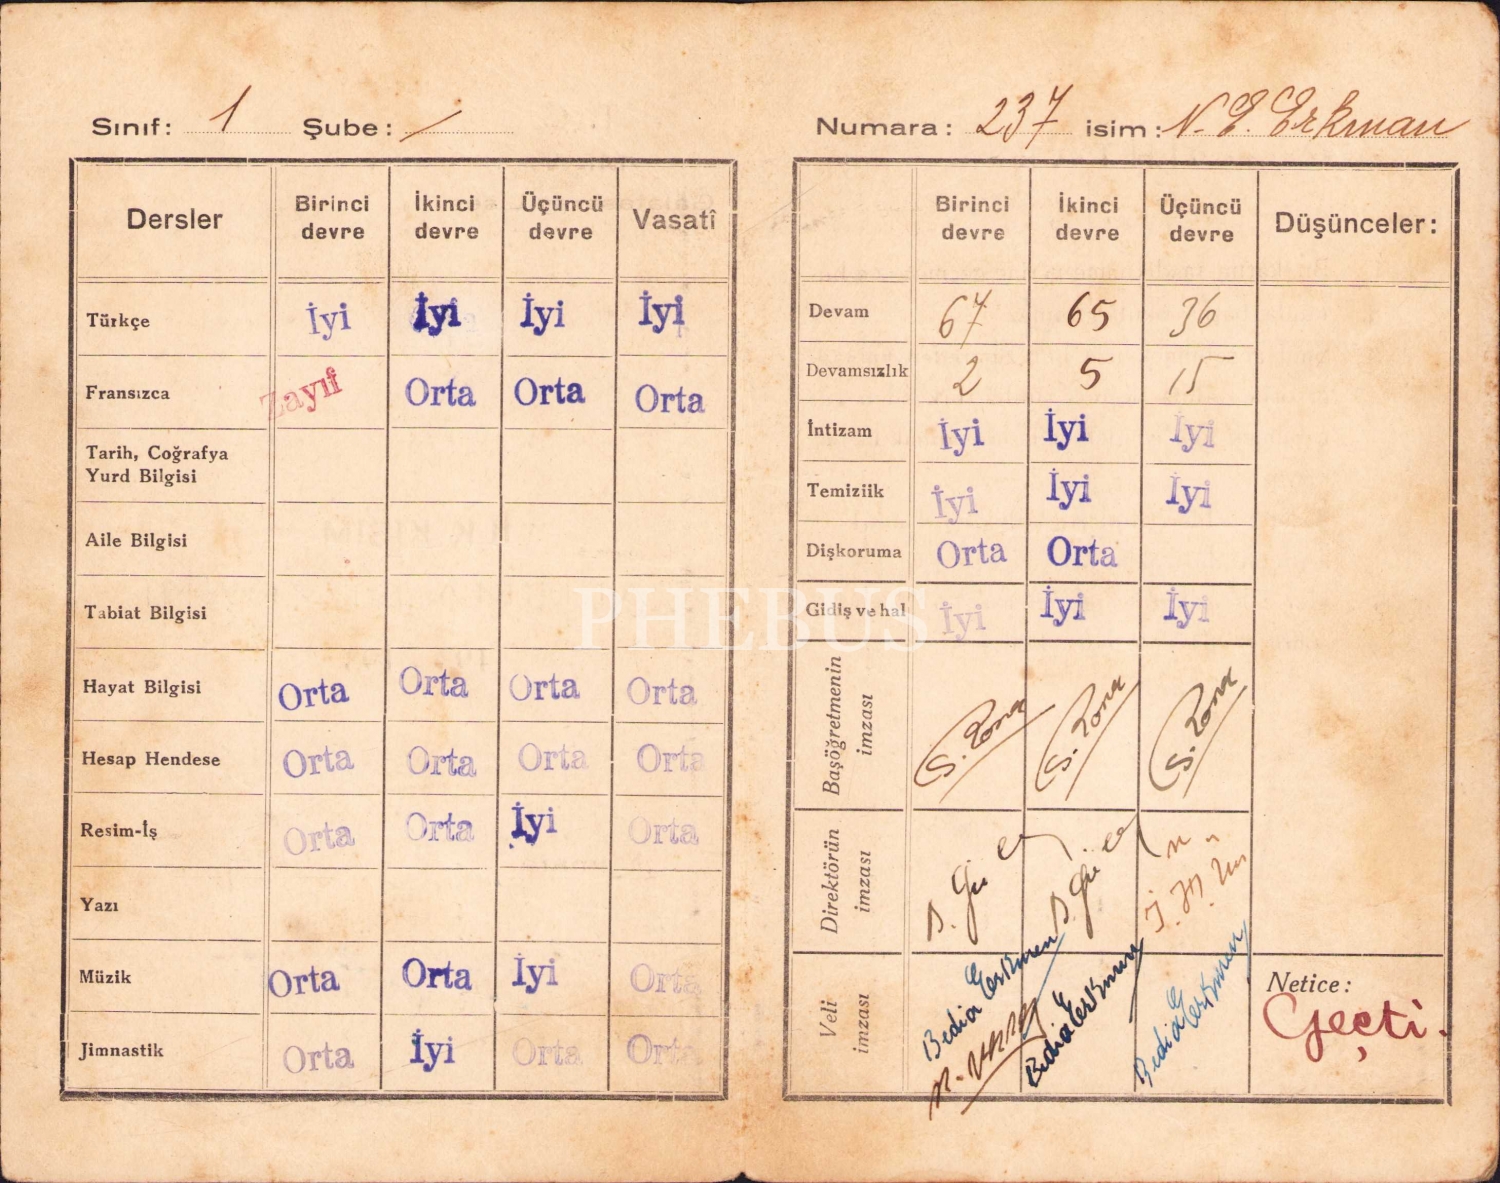 Sınıf: 1 Şube: /
Dersler Birinci devre İkinci devre Üçüncü devre Vasatî
Türkçe İyi İyi İyi İyi
Fransızca Zayıf Orta Orta Orta
Tarih, Coğrafya
Yurd Bilgisi
Aile Bilgisi
Tabiat Bilgisi
Hayat Bilgisi Orta Orta Orta Orta
Hesap Hendese Orta Orta Orta Orta
Resim-İş Orta Orta İyi Orta
Yazı
Müzik Orta Orta İyi Orta
Jimnastik Orta İyi Orta Orta
Numara: 237 isim: N. E. Erkman
Birinci devre İkinci devre Üçüncü devre Düşünceler:
Devam 67 65 36
Devamsızlık 2 5 15
İntizam İyi İyi İyi
Temiziik İyi İyi İyi
Dişkoruma Orta Orta
Gidiş ve hal İyi İyi İyi
Başöğretmenin imzası S. Rona S. Rona S. Rona
Direktörün imzası
Veli imzası Bedia Erkmen Bedia Erkmen Bedia Erkmen
Netice:
Geçti.
PHEBUS